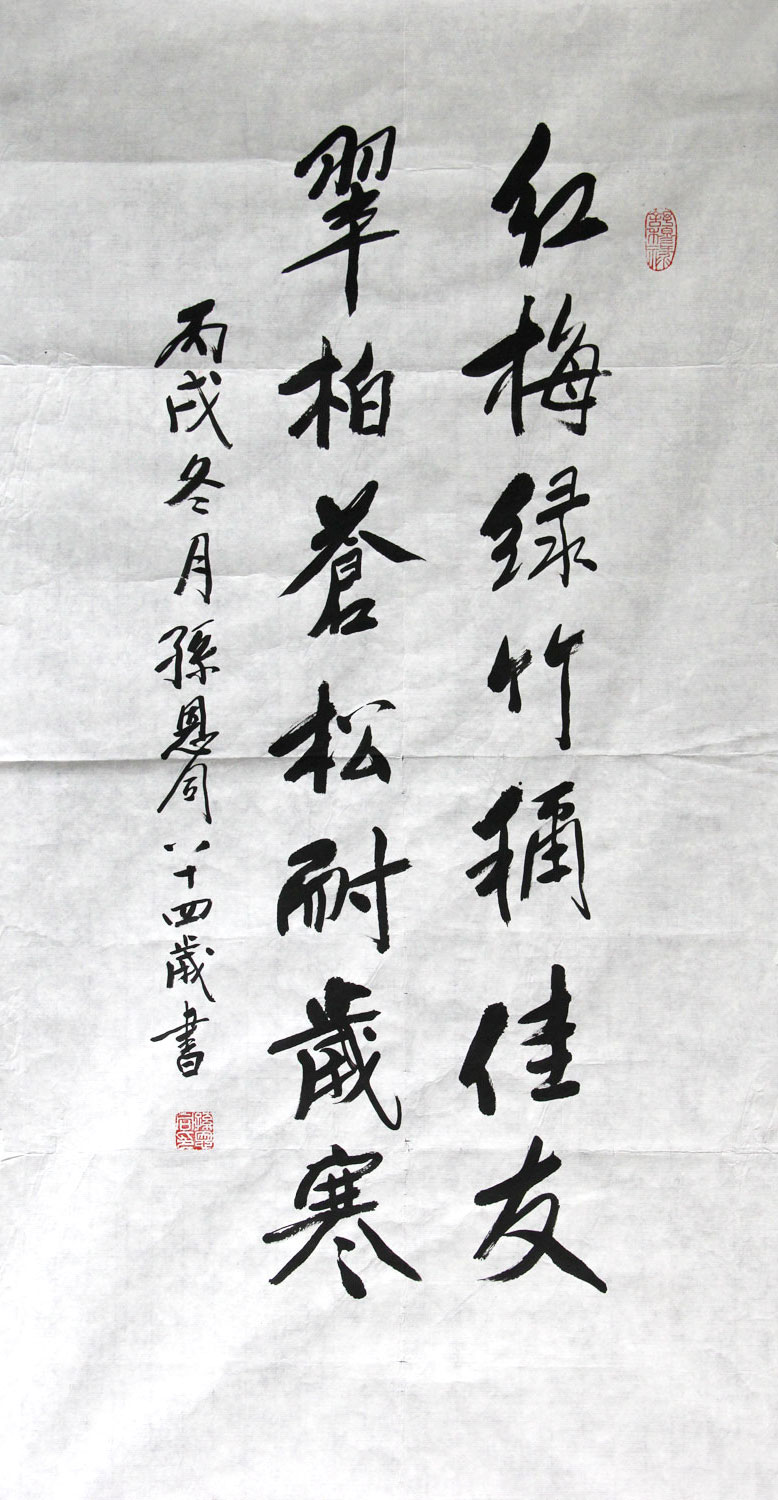 红梅绿竹稱佳友
翠柏蒼松耐歲寒
丙戌冬月孫恩同八十四歲書